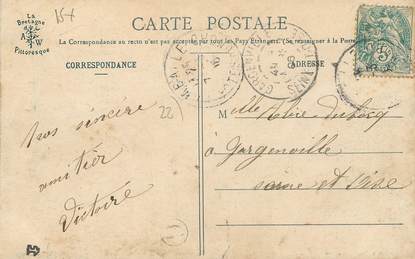 15+
La
Bretagne
A W
Pittoresque
CARTE POSTALE
La Correspondance au recto n'est pas acceptée par tous les Pays Étrangers. (Se renseigner à la Poste)
CORRESPONDANCE
ADRESSE
22
Melle
à Gargenville
Seine et Oise
Nos sincère
amitier
Victoire